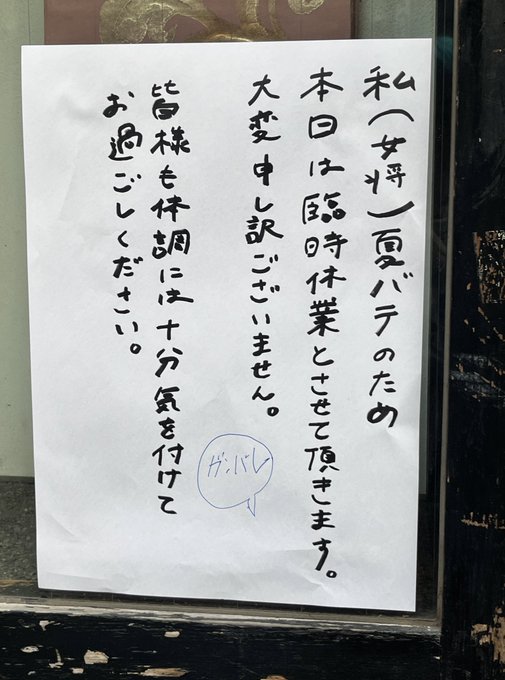 私（女将）夏バテのため
本日は臨時休業とさせて頂きます。
大変申し訳ございません。
皆様も体調には十分気を付けて
お過ごしください。
ガンバレ